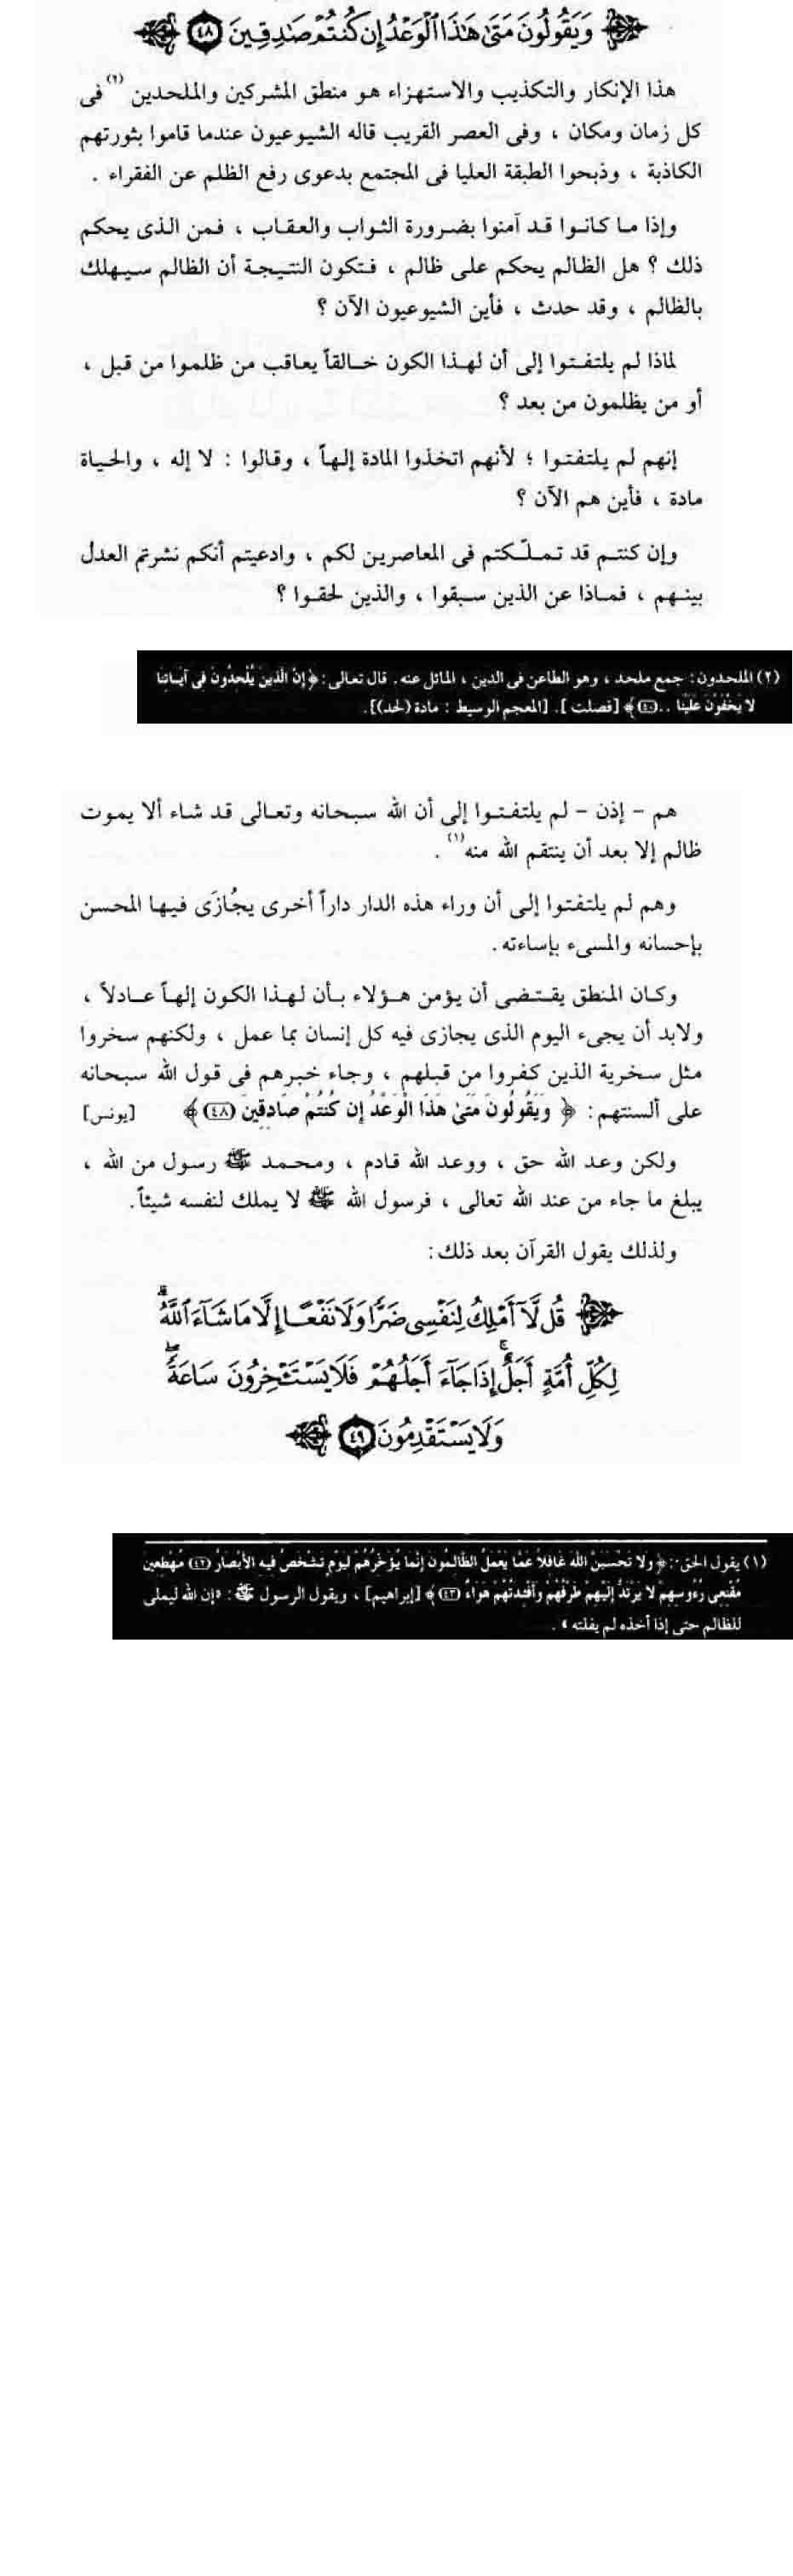 وَيَقُولُونَ مَتَىٰ هَٰذَا ٱلْوَعْدُ إِن كُنتُمْ صَٰدِقِينَ ٤٨
هذا الإنكار والتكذيب والاستهزاء هو منطق المشركين والملحدين (٢) فى
كل زمان ومكان ، وفى العصر القريب قاله الشيوعيون عندما قاموا بثورتهم
الكاذبة ، وذبحوا الطبقة العليا فى المجتمع بدعوى رفع الظلم عن الفقراء .
وإذا ما كانوا قد آمنوا بضرورة الثواب والعقاب ، فمن الذى يحكم
ذلك ؟ هل الظالم يحكم على ظالم ، فتكون النتيجة أن الظالم سيهلك
بالظالم ، وقد حدث ، فأين الشيوعيون الآن ؟
لماذا لم يلتفتوا إلى أن لهذا الكون خالقاً يعاقب من ظلموا من قبل ،
أو من يظلمون من بعد ؟
إنهم لم يلتفتوا ؛ لأنهم اتخذوا المادة إلهاً ، وقالوا : لا إله ، والحياة
مادة ، فأين هم الآن ؟
وإن كنتم قد تملّكتم فى المعاصرين لكم ، وادعيتم أنكم نشرتم العدل
بينهم ، فماذا عن الذين سبقوا ، والذين لحقوا ؟
(٢) الملحدون : جمع ملحد ، وهو الطاعن فى الدين ، المائل عنه . قال تعالى : ﴿ إِنَّ الَّذِينَ يُلْحِدُونَ فِى آيَاتِنَا
لا يَخْفَوْنَ عَلَيْنَا .. (٤٠) ﴾ [فصلت ] . [المعجم الوسيط : مادة (لحد)] .
هم - إذن - لم يلتفتوا إلى أن الله سبحانه وتعالى قد شاء ألا يموت
ظالم إلا بعد أن ينتقم الله منه (١) .
وهم لم يلتفتوا إلى أن وراء هذه الدار داراً أخرى يُجازَى فيها المحسن
بإحسانه والمسىء بإساءته .
وكان المنطق يقتضى أن يؤمن هؤلاء بأن لهذا الكون إلهاً عادلاً ،
ولابد أن يجىء اليوم الذى يجازى فيه كل إنسان بما عمل ، ولكنهم سخروا
مثل سخرية الذين كفروا من قبلهم ، وجاء خبرهم فى قول الله سبحانه
على ألسنتهم : ﴿ وَيَقُولُونَ مَتَىٰ هَذَا الْوَعْدُ إِن كُنتُمْ صَادِقِينَ (٤٨) ﴾ [يونس]
ولكن وعد الله حق ، ووعد الله قادم ، ومحمد ﷺ رسول من الله ،
يبلغ ما جاء من عند الله تعالى ، فرسول الله ﷺ لا يملك لنفسه شيئاً .
ولذلك يقول القرآن بعد ذلك :
قُل لَّآ أَمْلِكُ لِنَفْسِى ضَرًّا وَلَا نَفْعًا إِلَّا مَا شَآءَ ٱللَّهُ ۗ
لِكُلِّ أُمَّةٍ أَجَلٌ ۚ إِذَا جَآءَ أَجَلُهُمْ فَلَا يَسْتَـْٔخِرُونَ سَاعَةً ۖ
وَلَا يَسْتَقْدِمُونَ ٤٩
(١) يقول الحق : ﴿ وَلا تَحْسَبَنَّ اللَّهَ غَافِلاً عَمَّا يَعْمَلُ الظَّالِمُونَ إِنَّمَا يُؤَخِّرُهُمْ لِيَوْمٍ تَشْخَصُ فِيهِ الأَبْصَارُ (٤٢) مُهْطِعِينَ
مُقْنِعِى رُءُوسِهِمْ لا يَرْتَدُّ إِلَيْهِمْ طَرْفُهُمْ وَأَفْئِدَتُهُمْ هَوَاءٌ (٤٣) ﴾ [إبراهيم] ، ويقول الرسول ﷺ : «إن الله ليملى
للظالم حتى إذا أخذه لم يفلته » .